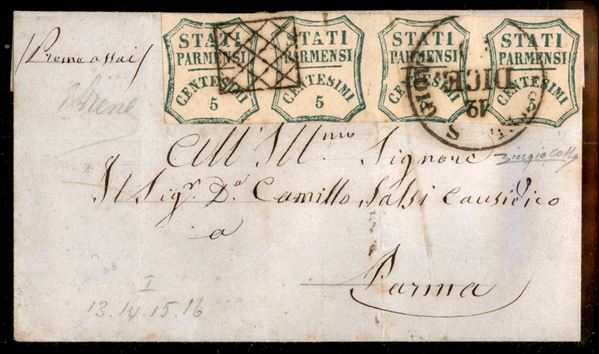 STATI PARMENSI CENTESIMI 5
STATI PARMENSI CENTESIMI 5
STATI PARMENSI CENTESIMI 5
STATI PARMENSI CENTESIMI 5
12
DICE
Preme assai
All' Ill.mo Signore
Il Sig.r D.r Camillo Salsi Causidico
a
Parma
I
13.14.15.16